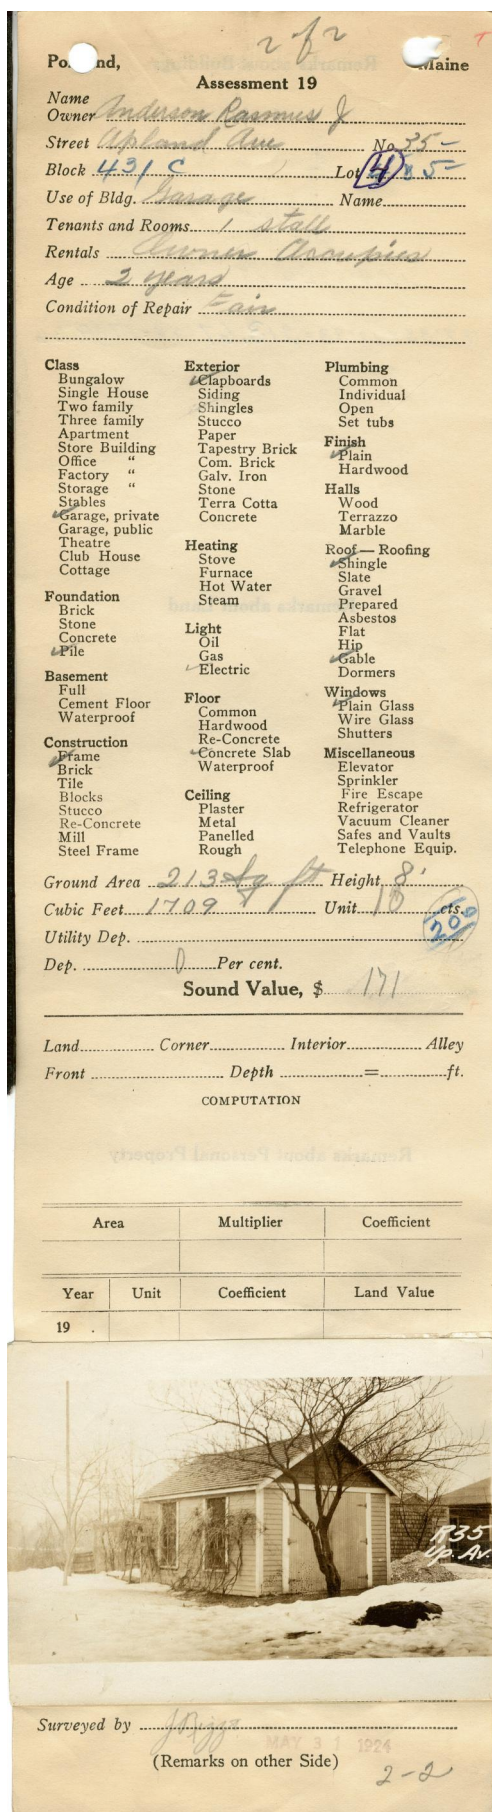 2 of 2
Portland, Maine
Assessment 19
Name
Owner Anderson Rasmus J
Street Upland Ave No 35-
Block 431 C Lot 4 5-
Use of Bldg. Garage Name
Tenants and Rooms 1 stall
Rentals Owner Occupies
Age 2 years
Condition of Repair Fair
Class
Bungalow
Single House
Two family
Three family
Apartment
Store Building
Office "
Factory "
Storage "
Stables
Garage, private
Garage, public
Theatre
Club House
Cottage
Foundation
Brick
Stone
Concrete
Pile
Basement
Full
Cement Floor
Waterproof
Construction
Frame
Brick
Tile
Blocks
Stucco
Re-Concrete
Mill
Steel Frame
Exterior
Clapboards
Siding
Shingles
Stucco
Paper
Tapestry Brick
Com. Brick
Galv. Iron
Stone
Terra Cotta
Concrete
Heating
Stove
Furnace
Hot Water
Steam
Light
Oil
Gas
Electric
Floor
Common
Hardwood
Re-Concrete
Concrete Slab
Waterproof
Ceiling
Plaster
Metal
Panelled
Rough
Plumbing
Common
Individual
Open
Set tubs
Finish
Plain
Hardwood
Halls
Wood
Terrazzo
Marble
Roof — Roofing
Shingle
Slate
Gravel
Prepared
Asbestos
Flat
Hip
Gable
Dormers
Windows
Plain Glass
Wire Glass
Shutters
Miscellaneous
Elevator
Sprinkler
Fire Escape
Refrigerator
Vacuum Cleaner
Safes and Vaults
Telephone Equip.
Ground Area 213 Sq ft Height 8'
Cubic Feet 1709 Unit 10 cts.
200
Utility Dep.
Dep. 0 Per cent.
Sound Value, $ 171
Land Corner Interior Alley
Front Depth = ft.
COMPUTATION
Remarks about Personal Property
Area Multiplier Coefficient
Year Unit Coefficient Land Value
19 .
R35
Up. Av.
Surveyed by
MAY 31 1924
(Remarks on other Side)
2-2